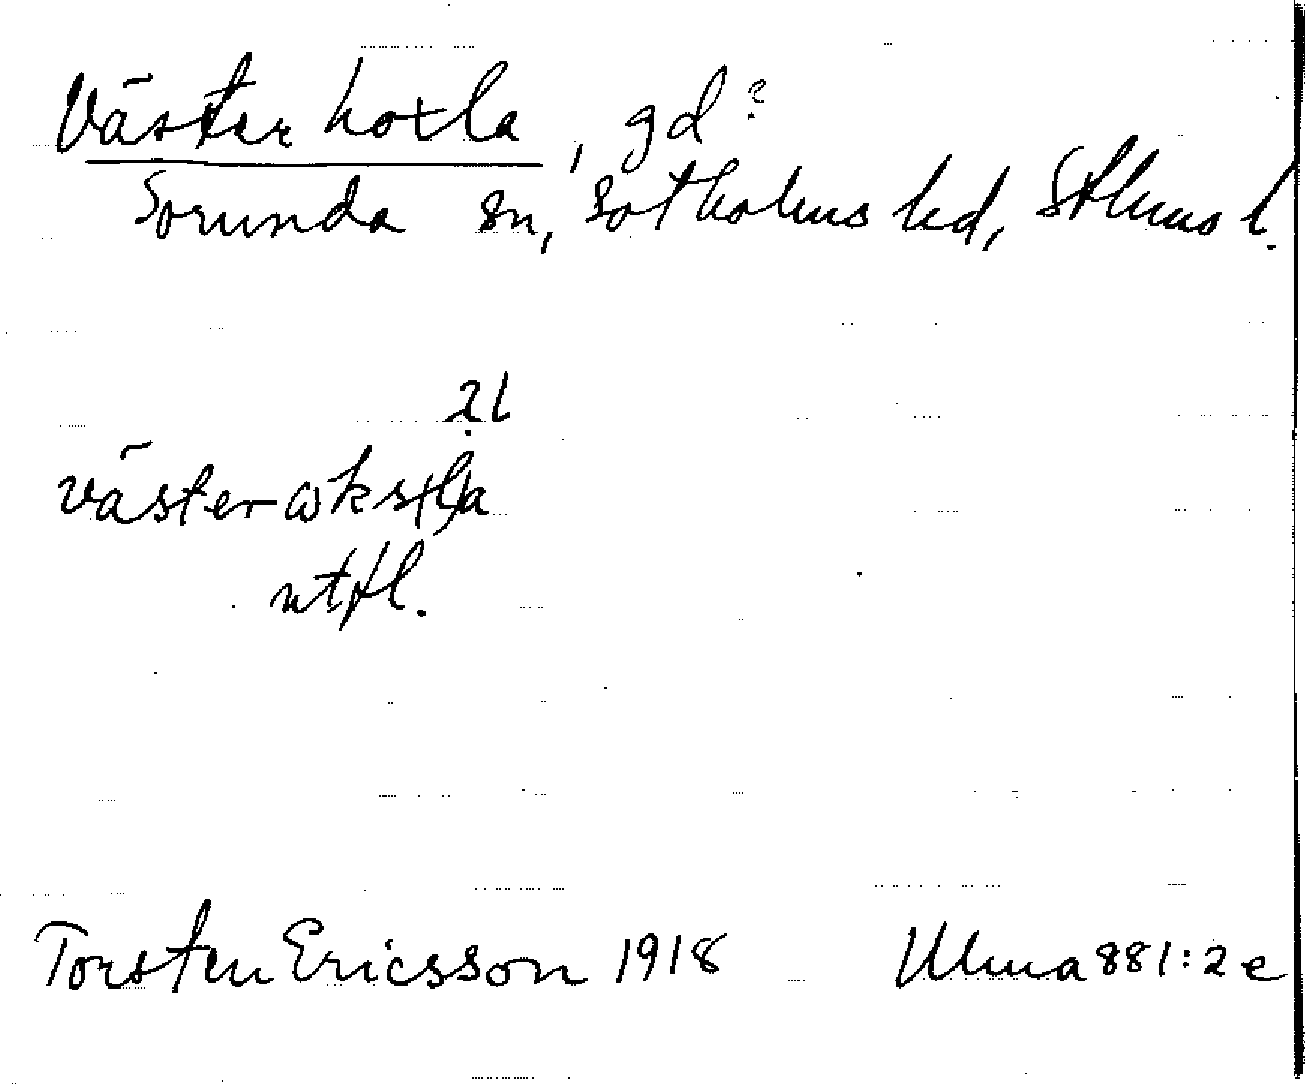 Väster hoxla, gd?
Sorunda sn, Sotholms hd, Sthlms l.
21
väster-ωkst(l)a
utfl.
Torsten Ericsson 1918 Ulma 881:2 e